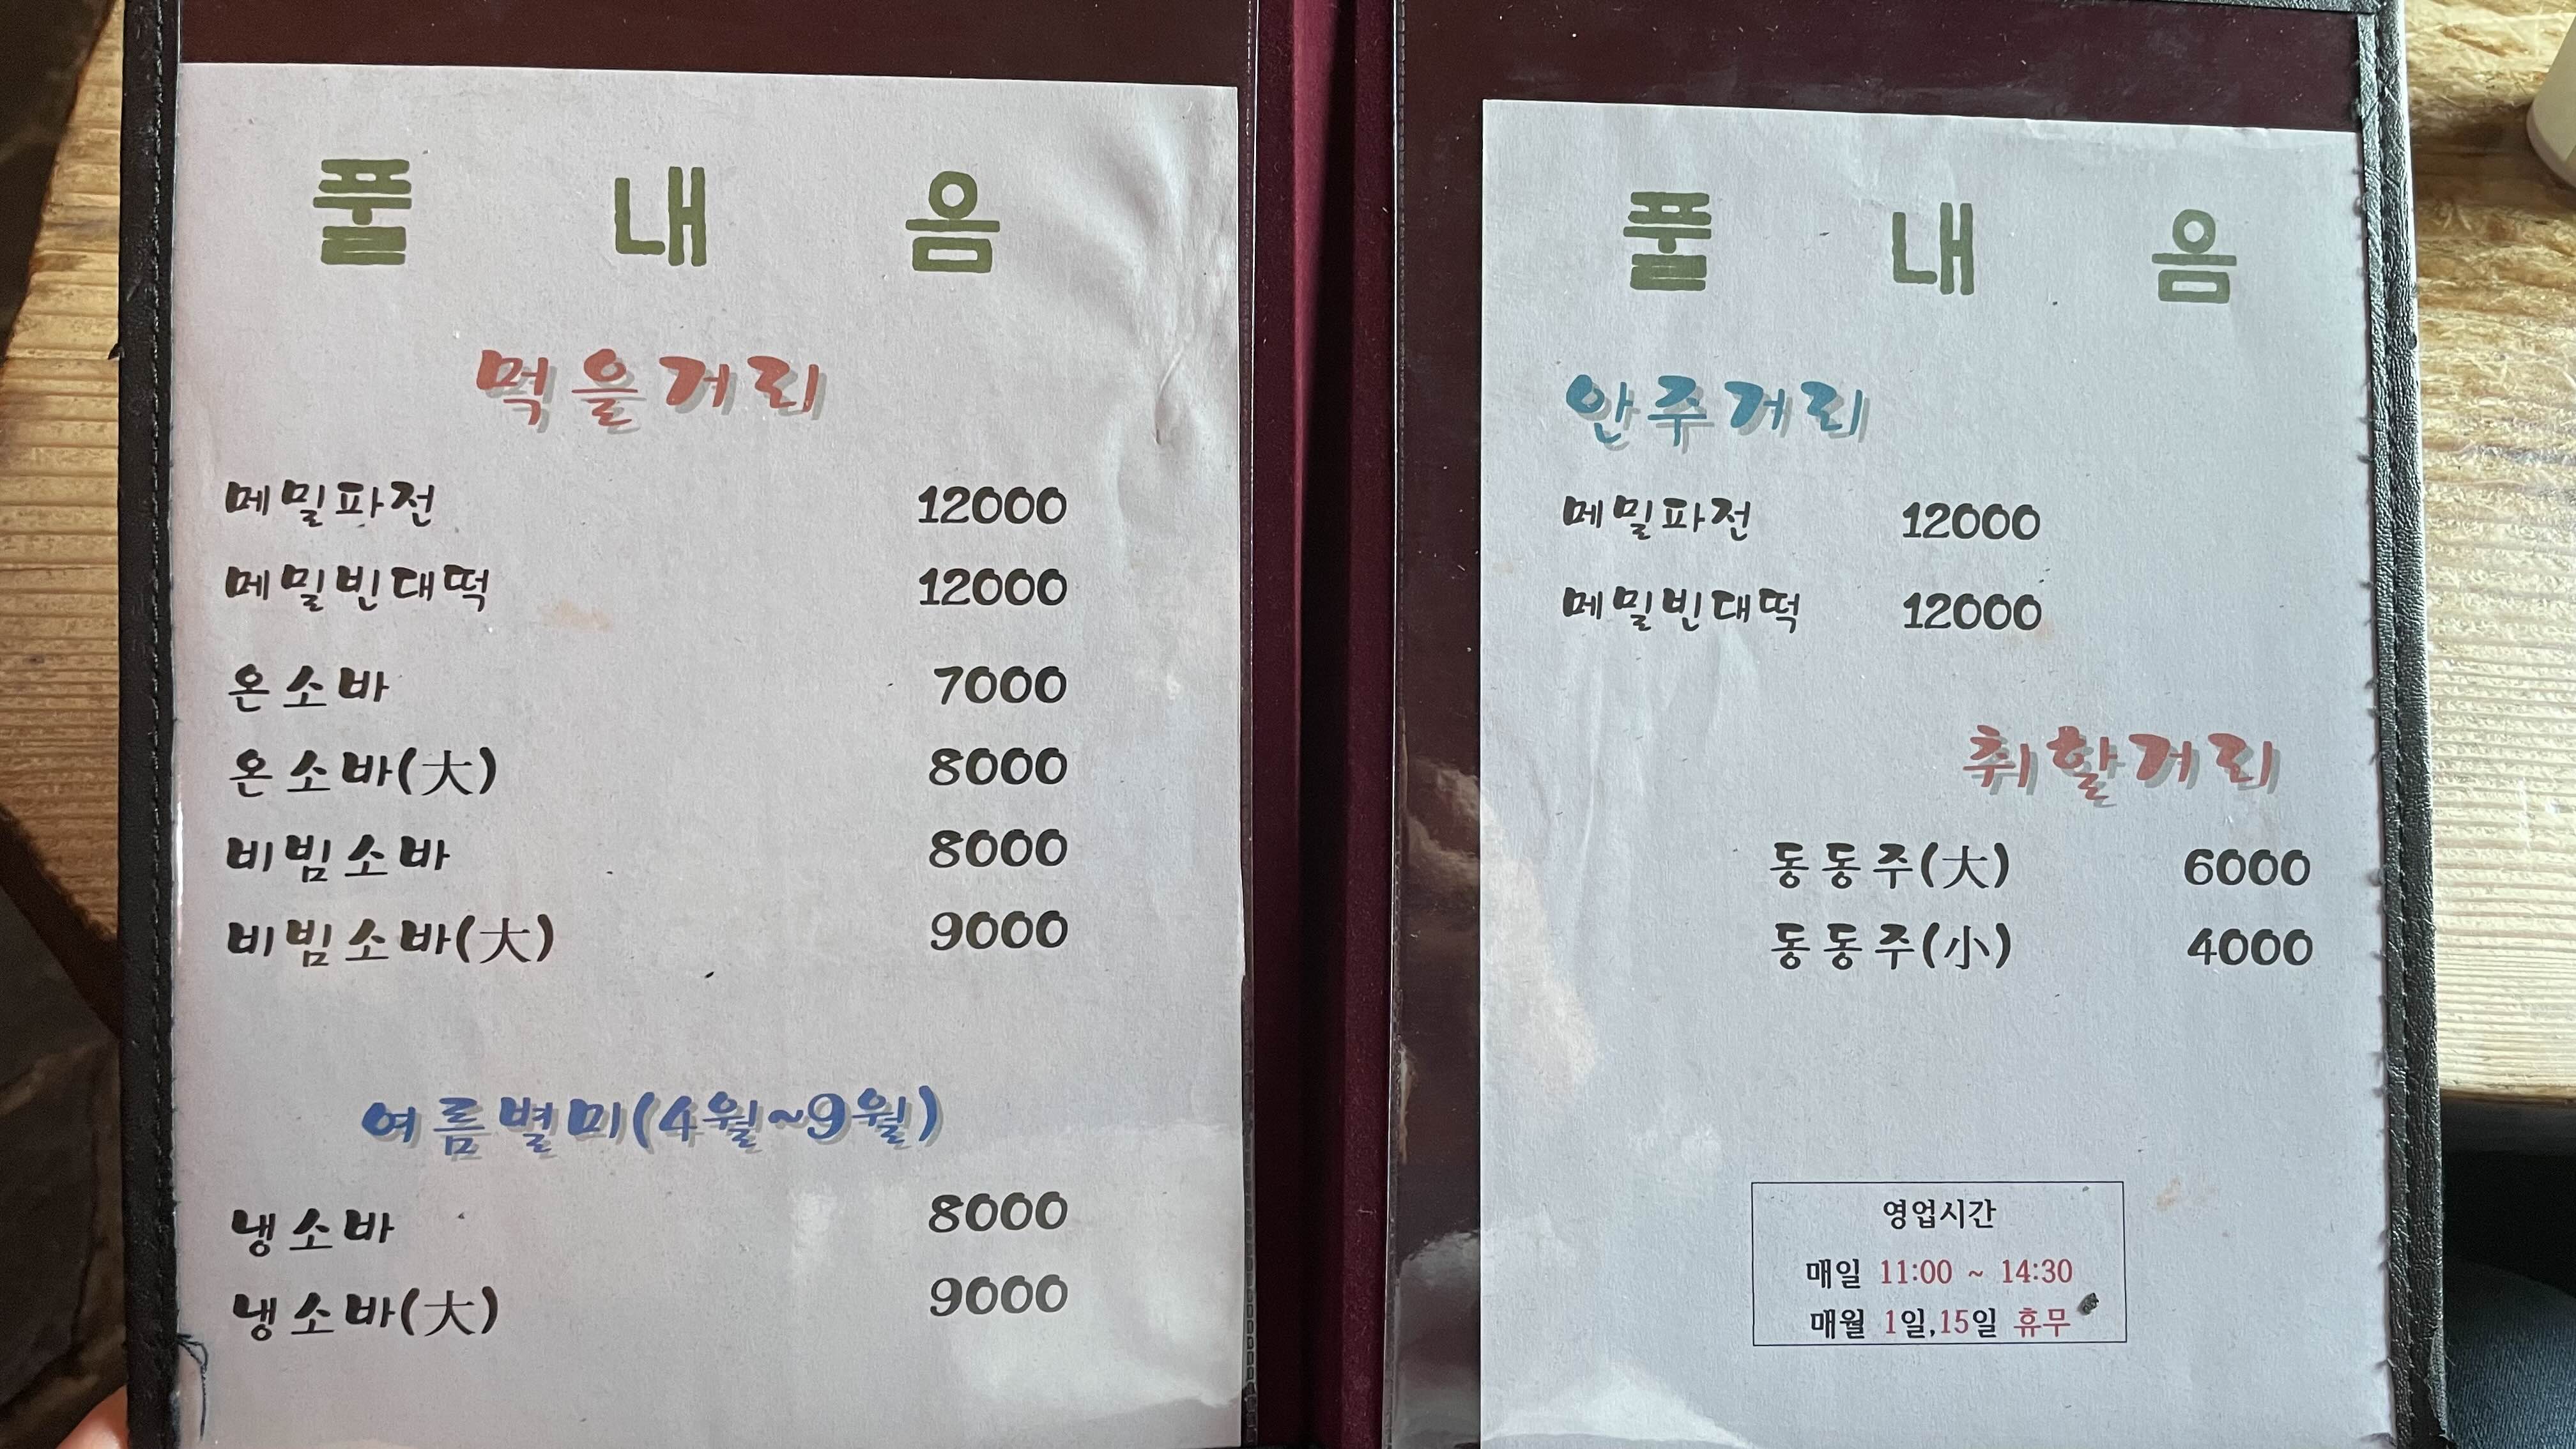 풀 내 음
먹을거리
메밀파전 12000
메밀빈대떡 12000
온소바 7000
온소바(大) 8000
비빔소바 8000
비빔소바(大) 9000
여름별미(4월~9월)
냉소바 8000
냉소바(大) 9000
풀 내 음
안주거리
메밀파전 12000
메밀빈대떡 12000
취할거리
동동주(大) 6000
동동주(小) 4000
영업시간
매일 11:00 ~ 14:30
매월 1일,15일 휴무